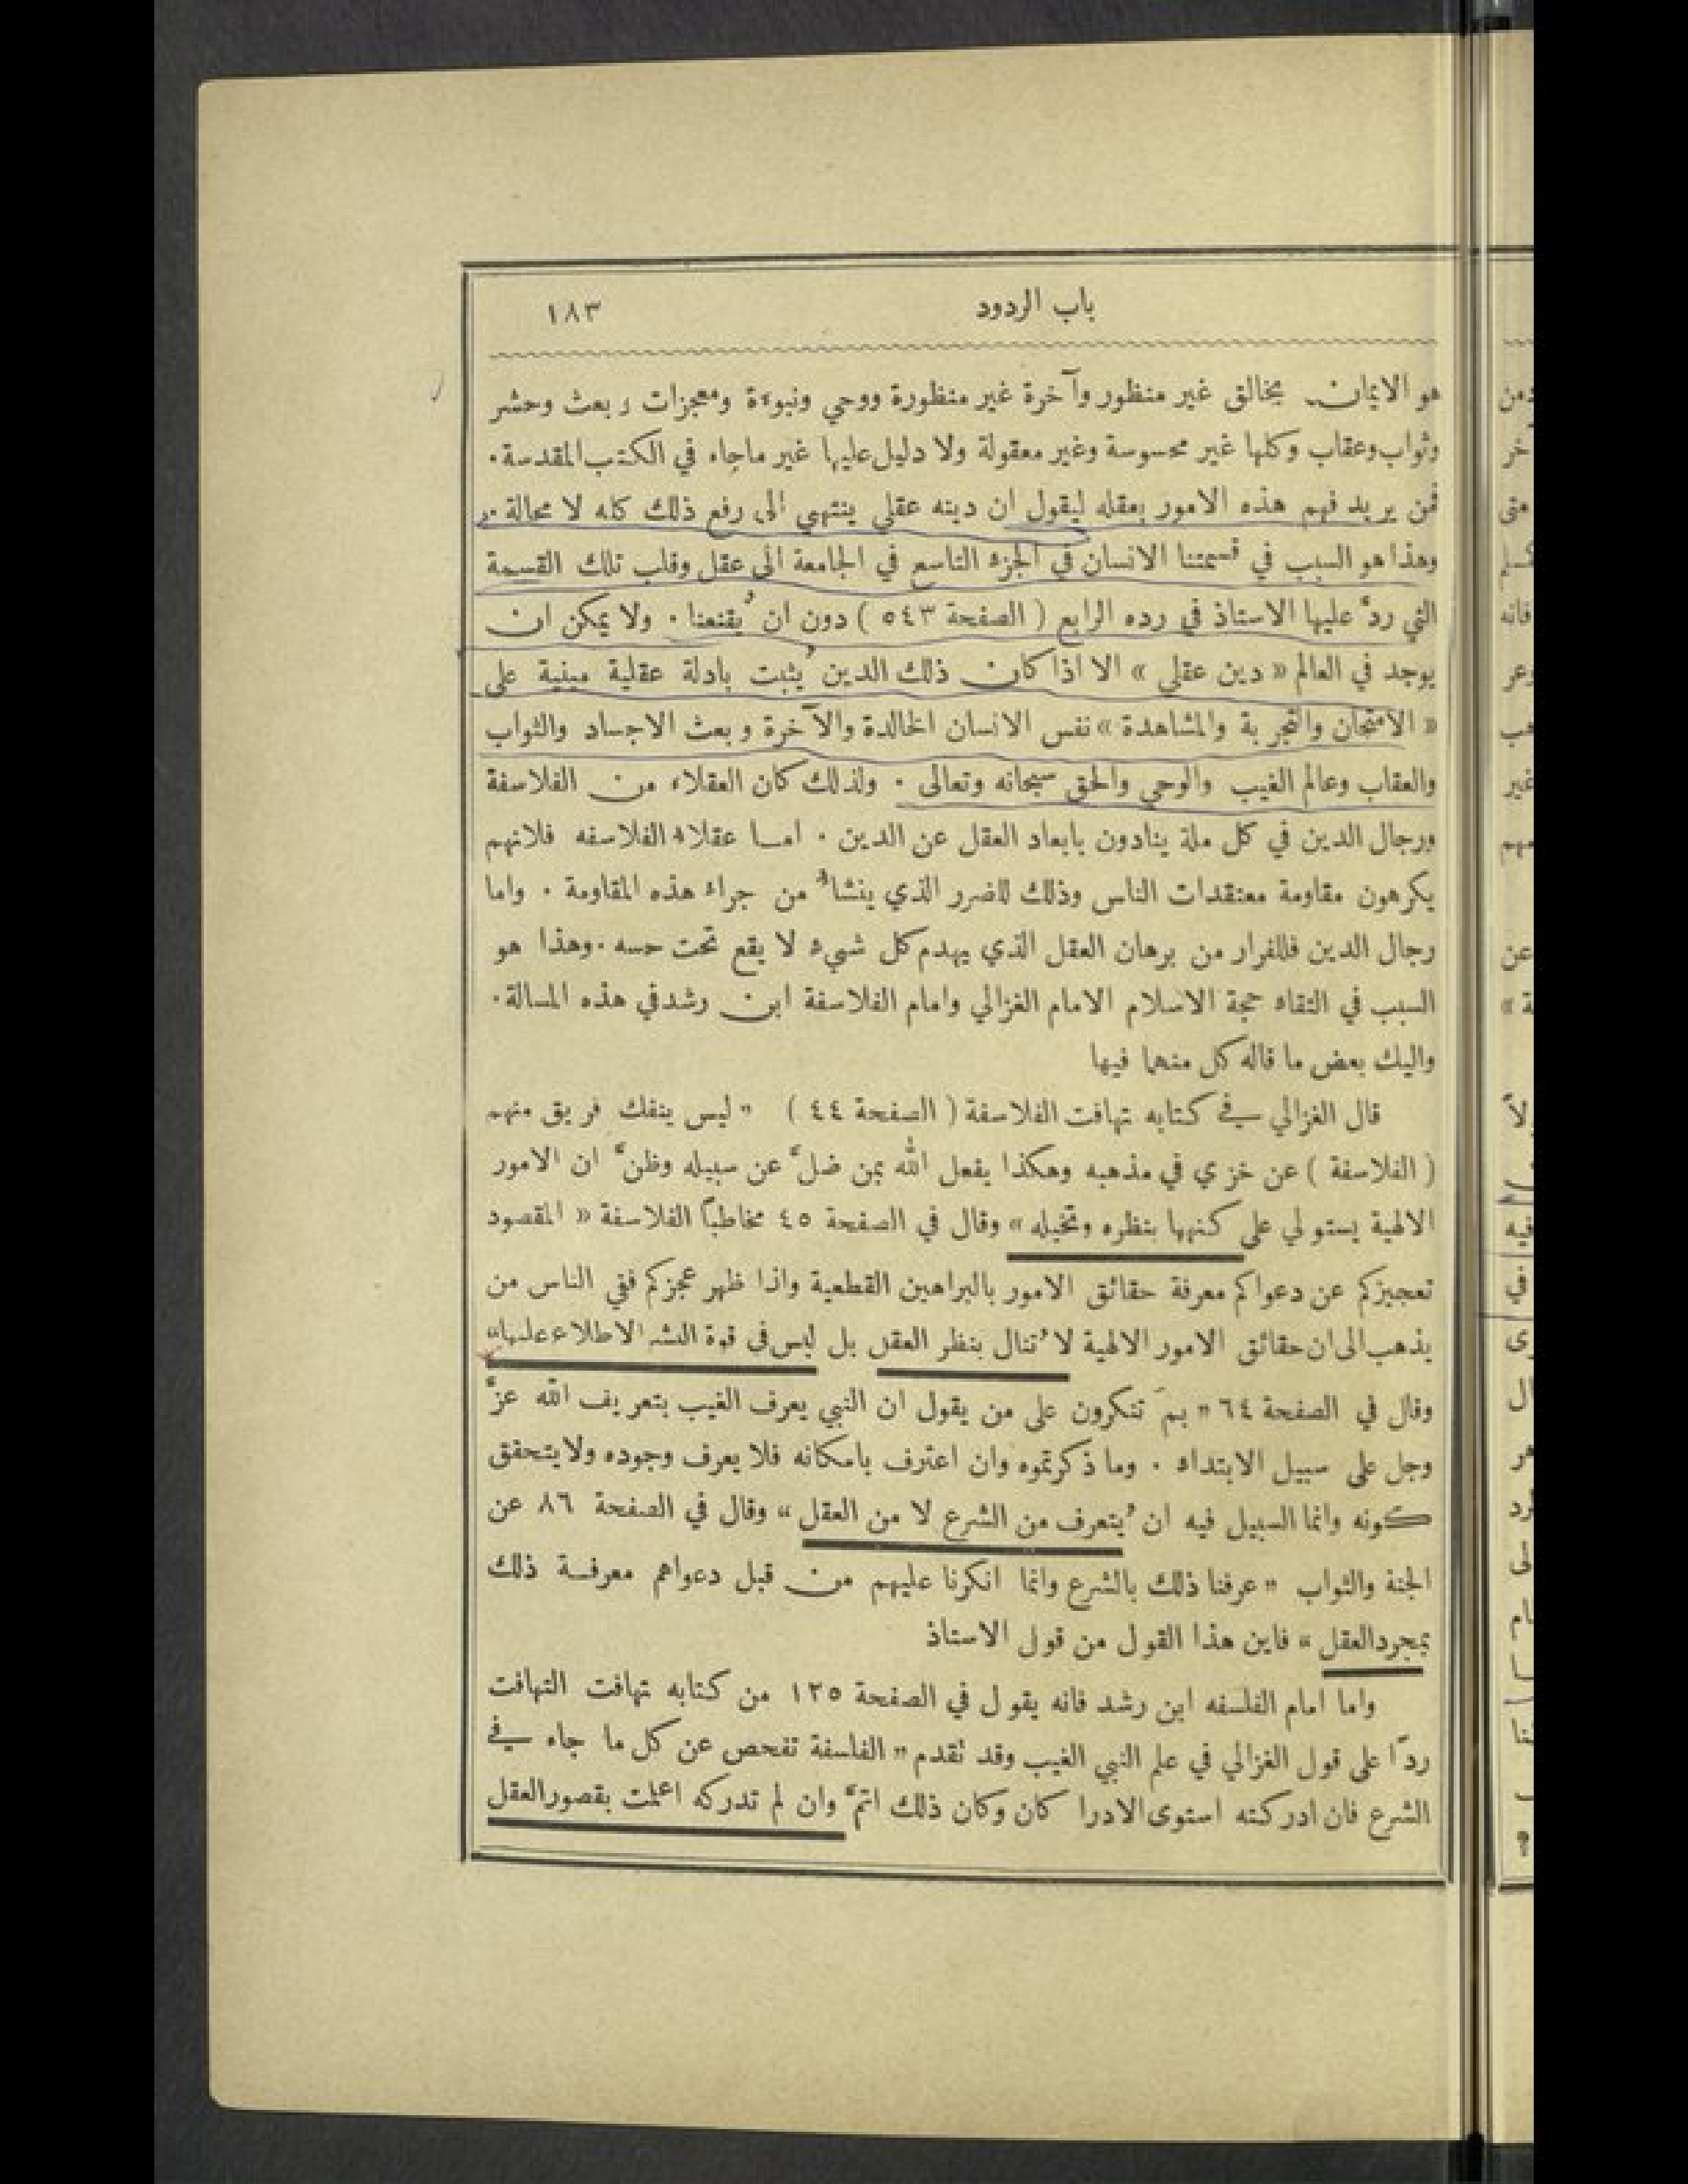 باب الردود
١٨٣
هو الايمان بخالق غير منظور وآخرة غير منظورة ووحي ونبوءة ومعجزات وبعث وحشر
وثواب وعقاب وكلها غير محسوسة وغير معقولة ولا دليل عليها غير ماجاء في الكتب المقدسة.
فمن يريد فهم هذه الامور بعقله ليقول ان دينه عقلي ينتهي الى رفع ذلك كله لا محالة.
وهذا هو السبب في قسمتنا الانسان في الجزء التاسع في الجامعة الى عقل وقلب تلك القسمة
التي ردَّ عليها الاستاذ في رده الرابع ( الصفحة ٥٤٣ ) دون ان يُقنعنا. ولا يمكن ان
يوجد في العالم « دين عقلي » الا اذا كان ذلك الدين يُثبت بادلة عقلية مبنية على
« الامتحان والتجربة والمشاهدة » نفس الانسان الخالدة والآخرة وبعث الاجساد والثواب
والعقاب وعالم الغيب والوحي والحق سبحانه وتعالى. ولذلك كان العقلاء من الفلاسفة
ورجال الدين في كل ملة ينادون بابعاد العقل عن الدين. اما عقلاء الفلاسفه فلانهم
يكرهون مقاومة معتقدات الناس وذلك للضرر الذي ينشاء من جراء هذه المقاومة. واما
رجال الدين فللفرار من برهان العقل الذي يهدم كل شيء لا يقع تحت حسه. وهذا هو
السبب في التقاء حجة الاسلام الامام الغزالي وامام الفلاسفة ابن رشد في هذه المسالة.
واليك بعض ما قاله كل منهما فيها
قال الغزالي في كتابه تهافت الفلاسفة ( الصفحة ٤٤ ) « ليس ينفك فريق منهم
( الفلاسفة ) عن خزي في مذهبه وهكذا يفعل الله بمن ضلَّ عن سبيله وظنَّ ان الامور
الالهية يستولي على كنهها بنظره وتخيله » وقال في الصفحة ٤٥ مخاطبًا الفلاسفة « المقصود
تعجيزكم عن دعواكم معرفة حقائق الامور بالبراهين القطعية واذا ظهر عجزكم ففي الناس من
يذهب الى ان حقائق الامور الالهية لا تُنال بنظر العقل بل ليس في قوة البشر الاطلاع عليها »
وقال في الصفحة ٦٤ « بمَ تنكرون على من يقول ان النبي يعرف الغيب بتعريف الله عزَّ
وجل على سبيل الابتداء. وما ذكرتموه وان اعترف بامكانه فلا يعرف وجوده ولا يتحقق
كونه وانما السبيل فيه ان يُتعرف من الشرع لا من العقل » وقال في الصفحة ٨٦ عن
الجنة والثواب « عرفنا ذلك بالشرع وانما انكرنا عليهم من قبل دعواهم معرفة ذلك
بمجرد العقل » فاين هذا القول من قول الاستاذ
واما امام الفلسفه ابن رشد فانه يقول في الصفحة ١٢٥ من كتابه تهافت التهافت
ردًّا على قول الغزالي في علم النبي الغيب وقد تقدم « الفلسفة تفحص عن كل ما جاء في
الشرع فان ادركته استوى الادرا كان وكان ذلك اتمَّ وان لم تدركه اعلمت بقصور العقل